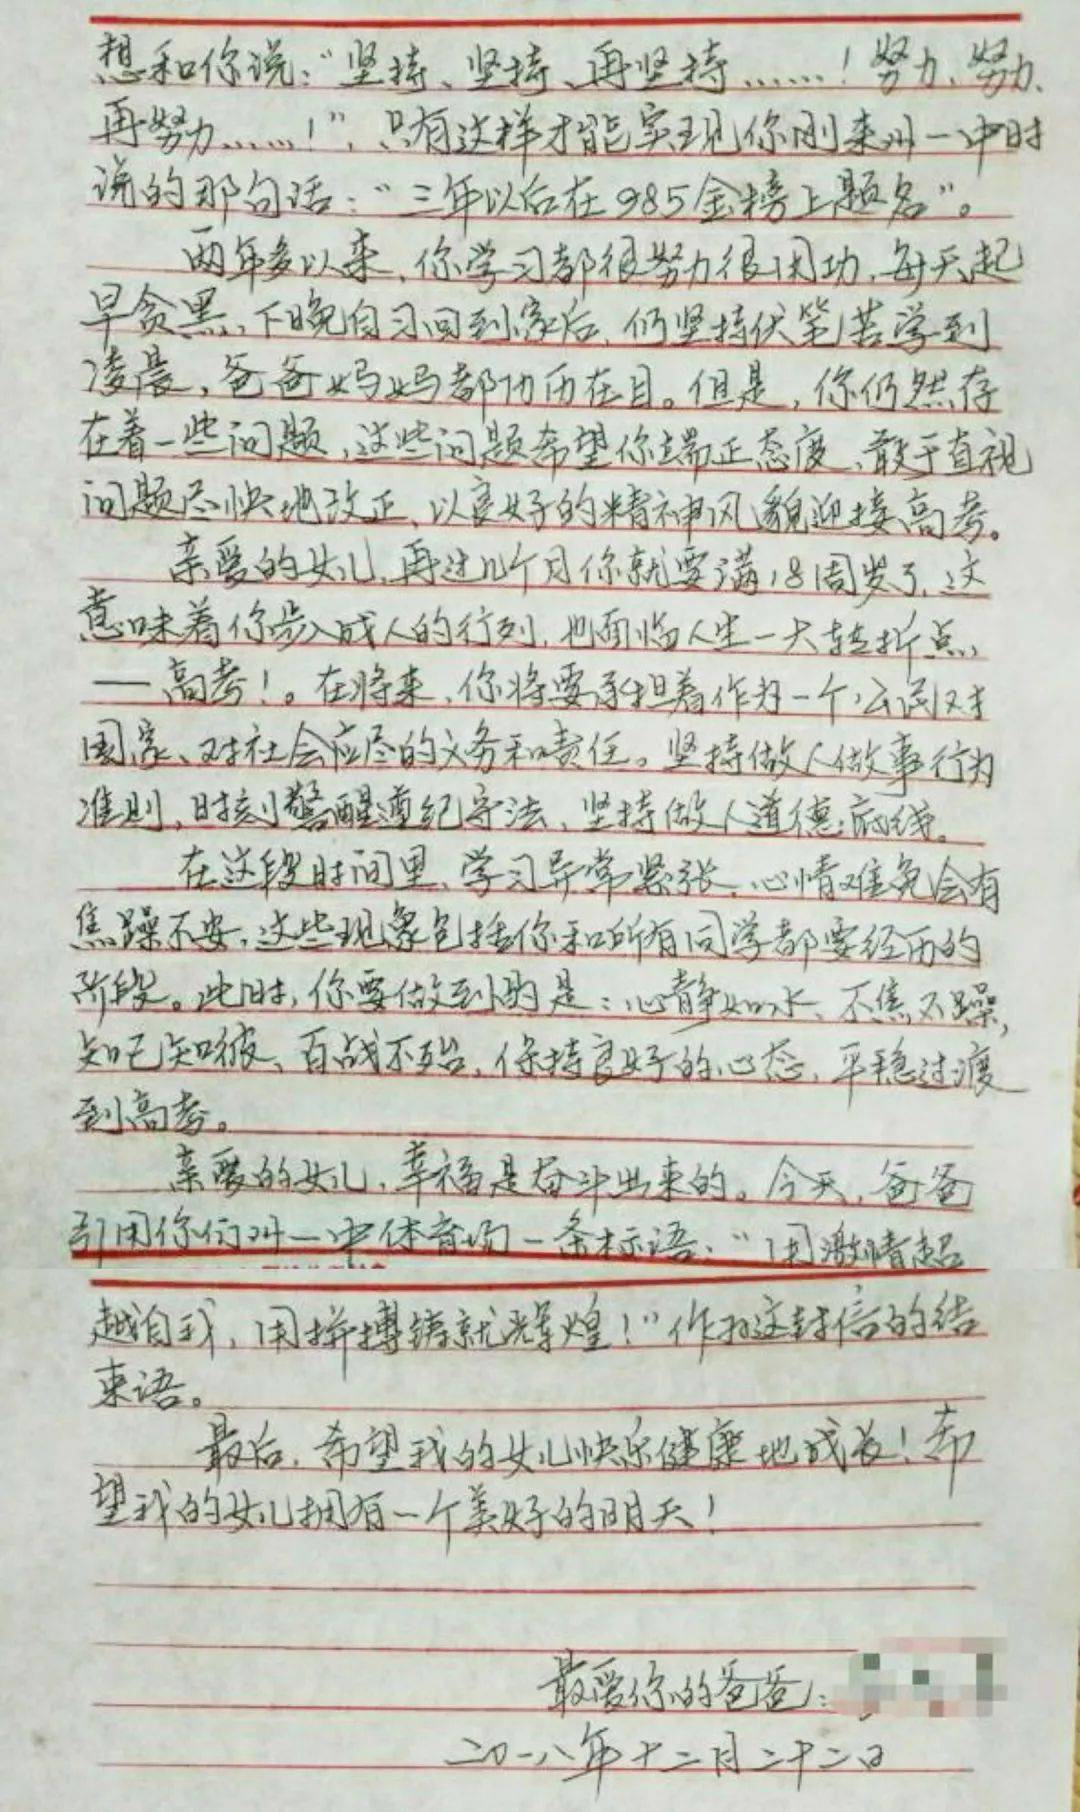 想和你说："坚持、坚持、再坚持……！努力、努力、
再努力……！"，只有这样才能实现你刚来州一中时
说的那句话："三年以后在985金榜上题名"。
两年多以来，你学习都很努力很用功，每天起
早贪黑、下晚自习回到家后，仍坚持伏笔苦学到
凌晨，爸爸妈妈都历历在目。但是，你仍然存
在着一些问题，这些问题希望你端正态度、敢于直视
问题尽快地改正、以良好的精神风貌迎接高考。
亲爱的女儿，再过几个月你就要满18周岁了，这
意味着你步入成人的行列，也面临人生一大转折点
——高考！。在将来，你将要承担着作为一个公民对
国家、对社会应尽的义务和责任。坚持做人做事行为
准则，时刻警醒遵纪守法、坚持做人道德底线。
在这段时间里、学习异常紧张、心情难免会有
焦躁不安，这些现象包括你和所有同学都要经历的
阶段。此时，你要做到的是：心静如水、不焦不躁，
知己知彼、百战不殆，保持良好的心态，平稳过渡
到高考。
亲爱的女儿，幸福是奋斗出来的。今天，爸爸
引用你们州一中体育场一条标语："用激情超
越自我，用拼搏铸就辉煌！"作为这封信的结
束语。
最后，希望我的女儿快乐健康地成长！希
望我的女儿拥有一个美好的明天！
最爱你的爸爸：
二〇一八年十二月二十二日